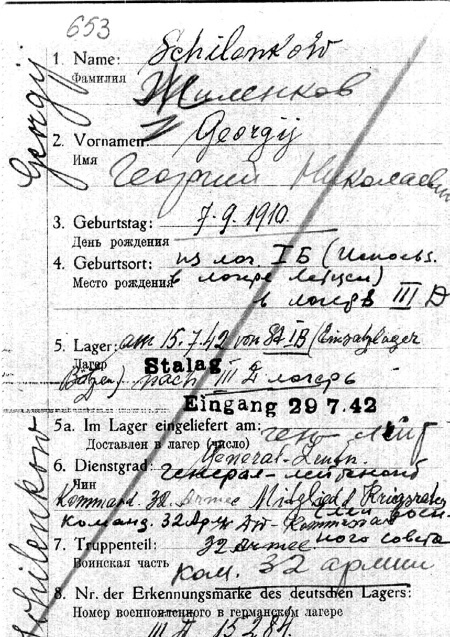 653
1. Name: Schilenkow
Фамилия Жиленков
2. Vornamen: Georgij
Имя Георгий Николаевич
3. Geburtstag: 7.9.1910.
День рождения
4. Geburtsort: из лаг. I Б
Место рождения в лагере
в лагерь III D
5. Lager: am 15.7.42 von St IB (Einsatzlager
Лагер Stalag
nach III D лагерь
Eingang 29 7. 42
5a. Im Lager eingeliefert am: ген-лейт
Доставлен в лагер (число)
6. Dienstgrad: General-Leutn.
Чин генерал-лейтенант
Kommand. 32. Armee Mitglied d Kriegsrates
Команд. 32 член воен.
ного совета
7. Truppenteil: 32 Armee
Воинская часть ком. 32 армии
8. Nr. der Erkennungsmarke des deutschen Lagers:
Номер военнопленного в германском лагере
Georgij
Schilenkow